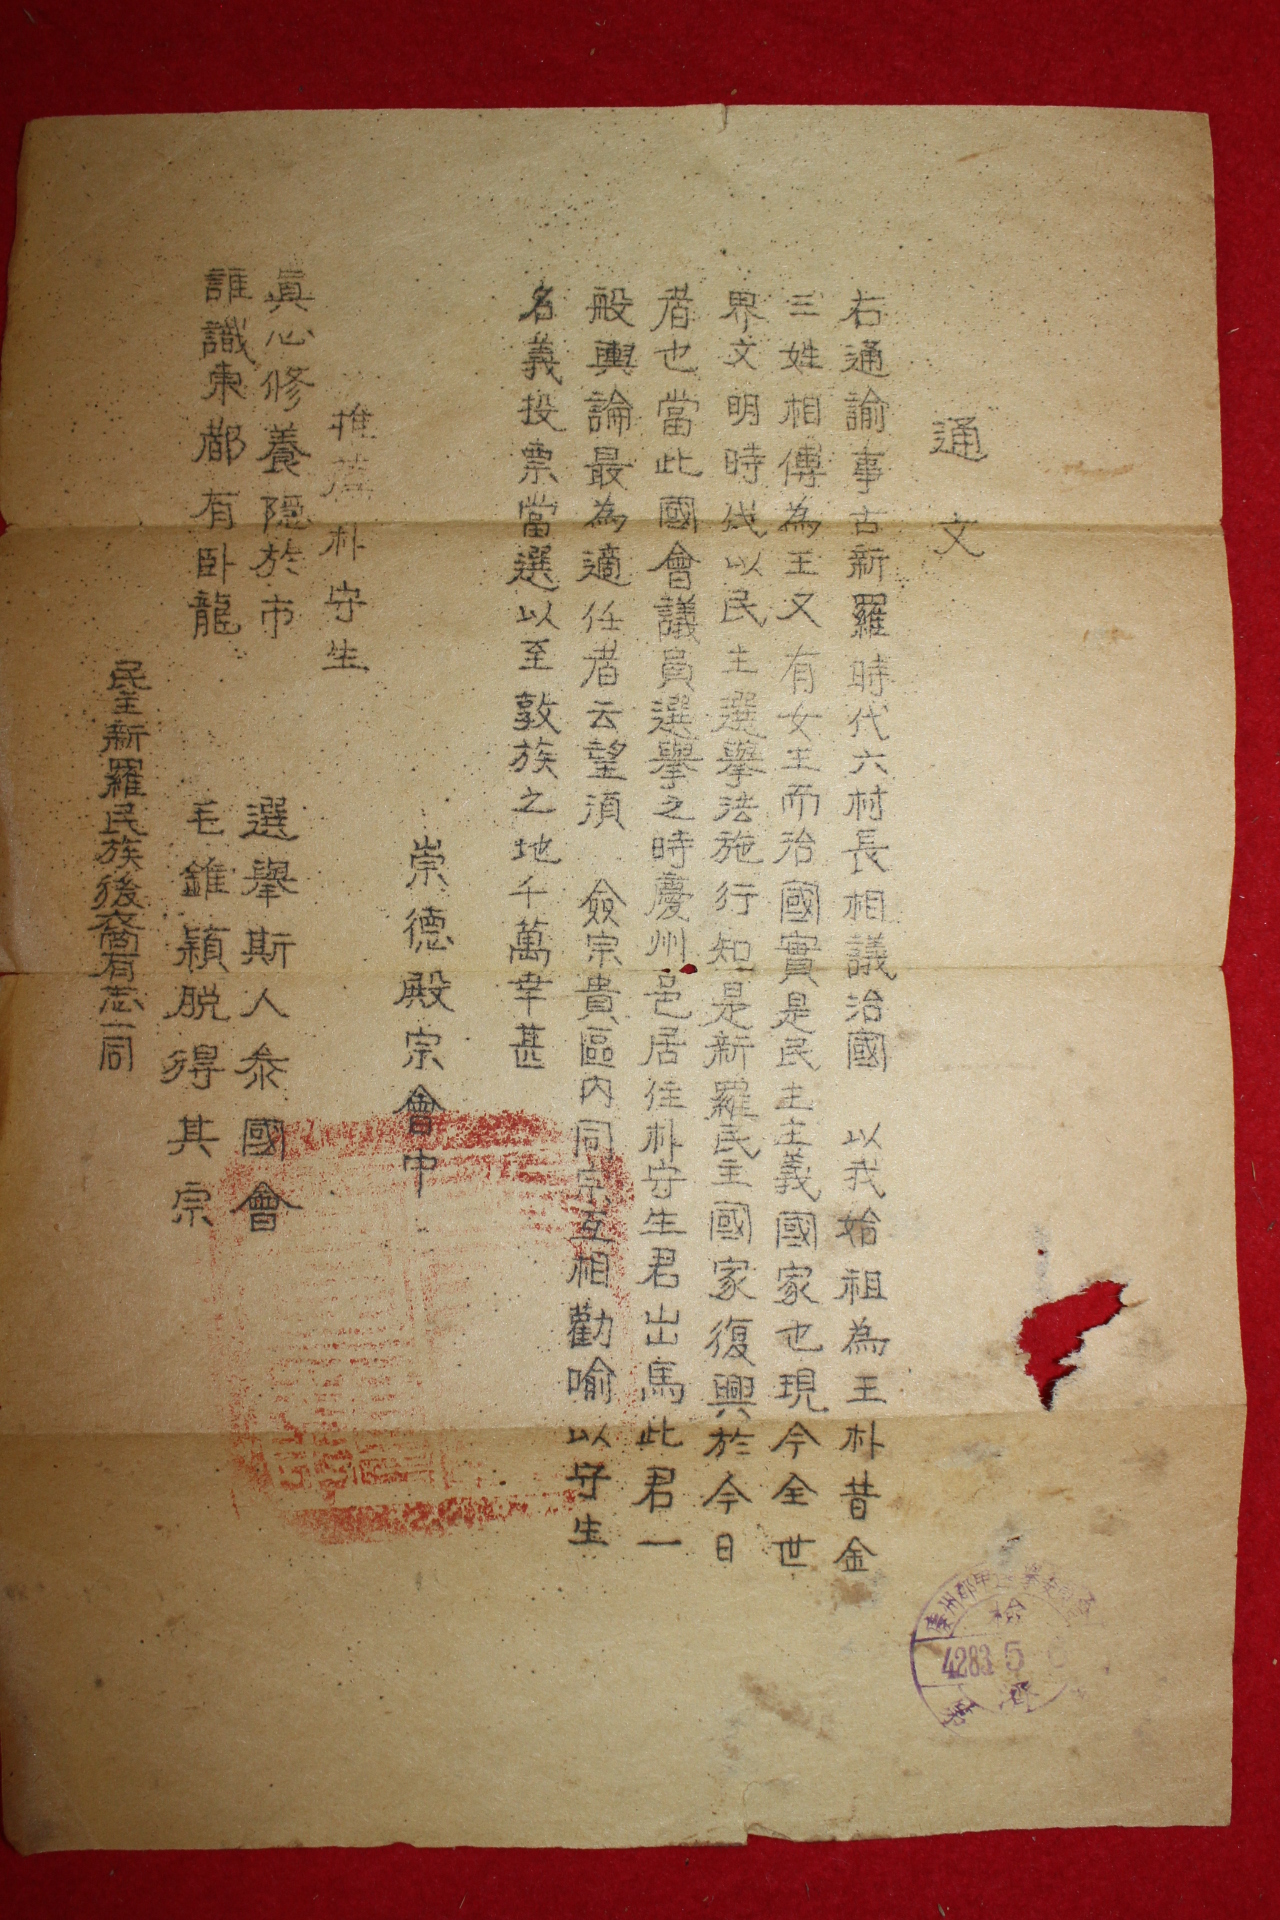 通文
右通諭事古新羅時代六村長相議治國 以我始祖為王朴昔金
三姓相傳為王又有女王而治國實是民主主義國家也現今全世
界文明時代以民主選擧法施行知是新羅民主國家復興於今日
者也當此國會議員選擧之時慶州邑居住朴守生君出馬此君一
般輿論最為適任者云望須 僉宗貴區內同宗互相勸喻以守生
名義投票當選以至敦族之地千萬幸甚
崇德殿宗會中
推薦朴守生
眞心修養隱於市 選擧斯人參國會
誰識東都有臥龍 毛錐穎脫得其宗
民主新羅民族後裔有志一同
慶州郡甲
4283 5